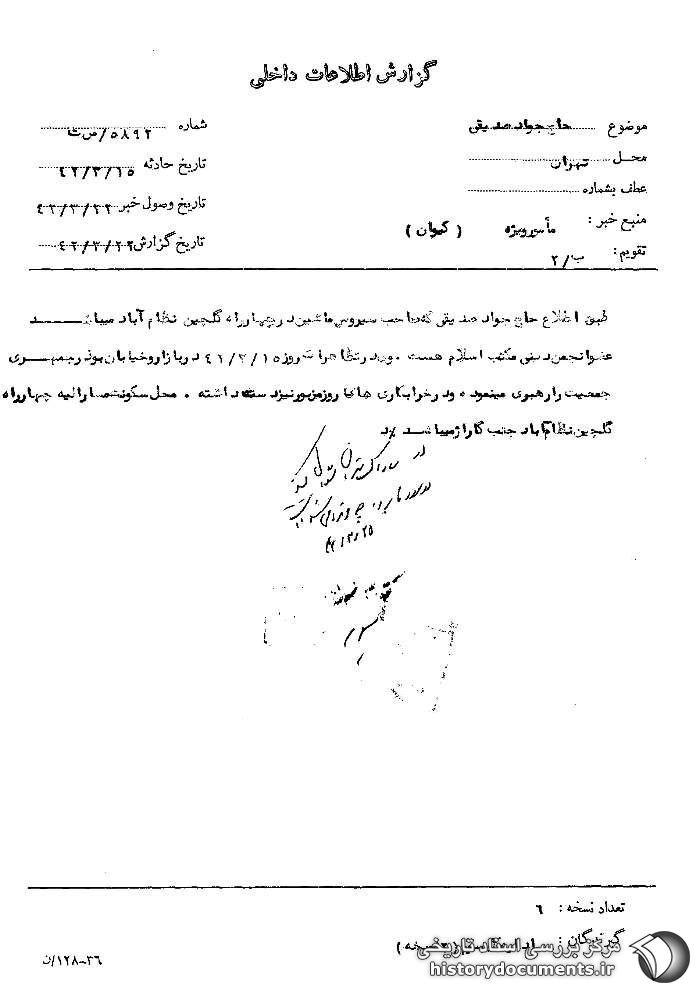 گزارش اطلاعات داخلی
موضوع حاج جواد صدیقی
شماره ۵۸۹۲/س ت
محل تهران
تاریخ حادثه ۴۲/۳/۱۵
عطف بشماره
تاریخ وصول خبر ۴۲/۳/۲۲
منبع خبر : مأمور ویژه ( کیوان )
تاریخ گزارش ۴۲/۳/۲۲
تقویم : ب/۲
طبق اطلاع حاج جواد صدیقی که صاحب سرویس ماشین در چهارراه گلچین نظام آباد میباشد
عضو انجمن دینی مکتب اسلام هست . و در تظاهرات روز ۴۲/۳/۱۵ در بازار و خیابان بوذرجمهری
جمعیت را رهبری مینموده و در خرابکاری های روز مزبور نیز دست داشته . محل سکونت مشارالیه چهارراه
گلچین نظام آباد جنب گاراژ میباشد
۴۲/۳/۲۵
تعداد نسخه : ۶
گیرندگان :
مرکز بررسی اسناد تاریخی
historydocuments.ir
۱۲۸-۳۶/ن